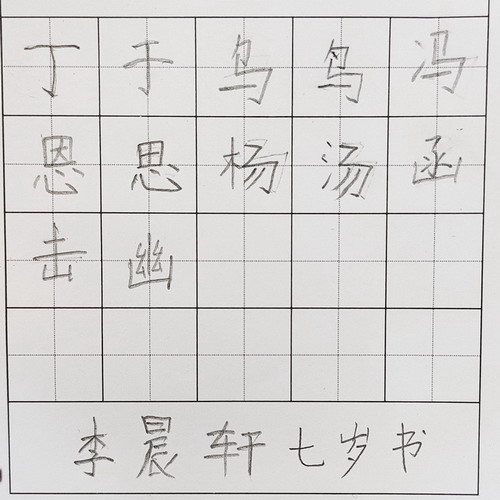 丁于乌鸟冯
恩思杨汤函
击幽
李晨轩七岁书